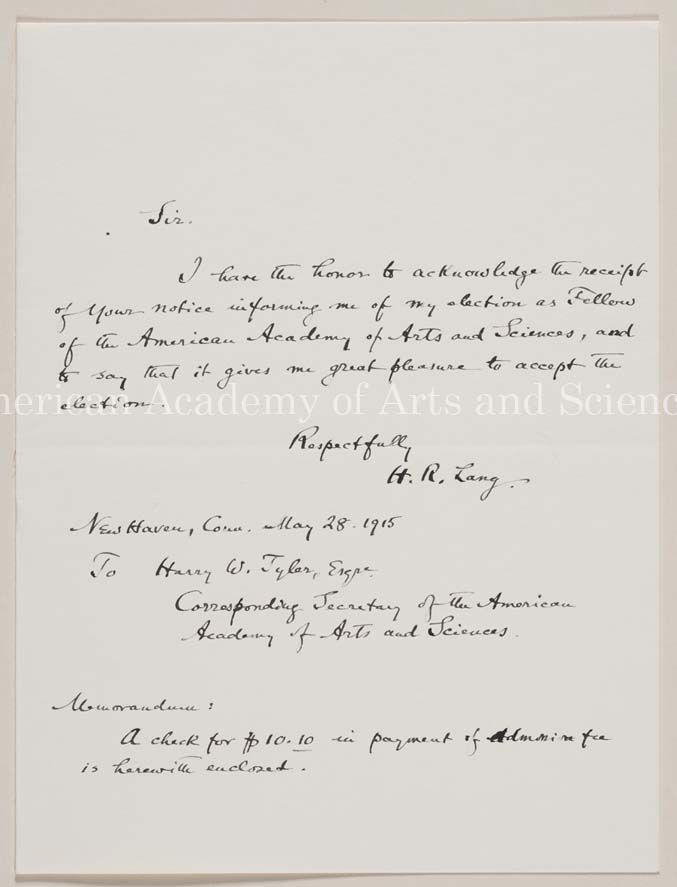 Sir.
I have the honor to acknowledge the receipt
of your notice informing me of my election as Fellow
of the American Academy of Arts and Sciences, and
to say that it gives me great pleasure to accept the
election.
American Academy of Arts and Scienc
Respectfully
H. R. Lang.
New Haven, Conn. May 28. 1915
To Harry W. Tyler, Esqre.
Corresponding Secretary of the American
Academy of Arts and Sciences.
Memorandum:
A check for $10.10 in payment of fee
is herewith enclosed.